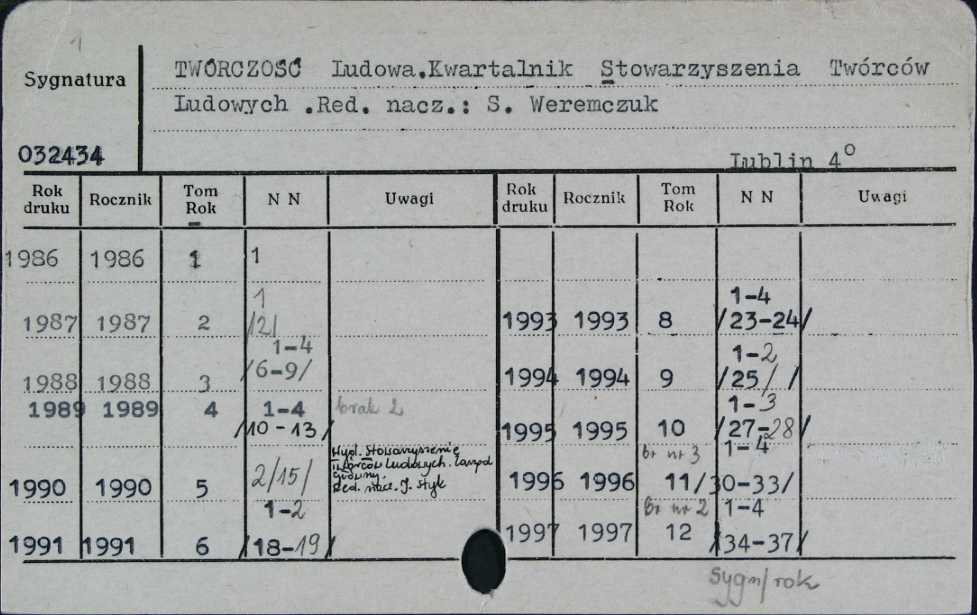 1
Sygnatura
TWÓRCZOŚĆ Ludowa.Kwartalnik Stowarzyszenia Twórców
Ludowych .Red. nacz.: S. Weremczuk
032434
Lublin 4°
Rok druku Rocznik Tom Rok N N Uwagi
1986 1986 1 1
1987 1987 2 1 /2/
1988 1988 3 1-4 /6-9/
1989 1989 4 1-4 /10-13/ brak 2
1990 1990 5 2/15/ Wyd. Stowarzyszenie
Twórców Ludowych. Zarząd
Główny.
Red. nacz. J. Styk
1991 1991 6 1-2 /18-19/
Rok druku Rocznik Tom Rok N N Uwagi
1993 1993 8 1-4 /23-24/
1994 1994 9 1-2 /25/ /
1995 1995 10 1-3 /27-28/
br nr 3
1996 1996 11 1-4 /30-33/
br nr 2
1997 1997 12 1-4 /34-37/
Sygn/rok